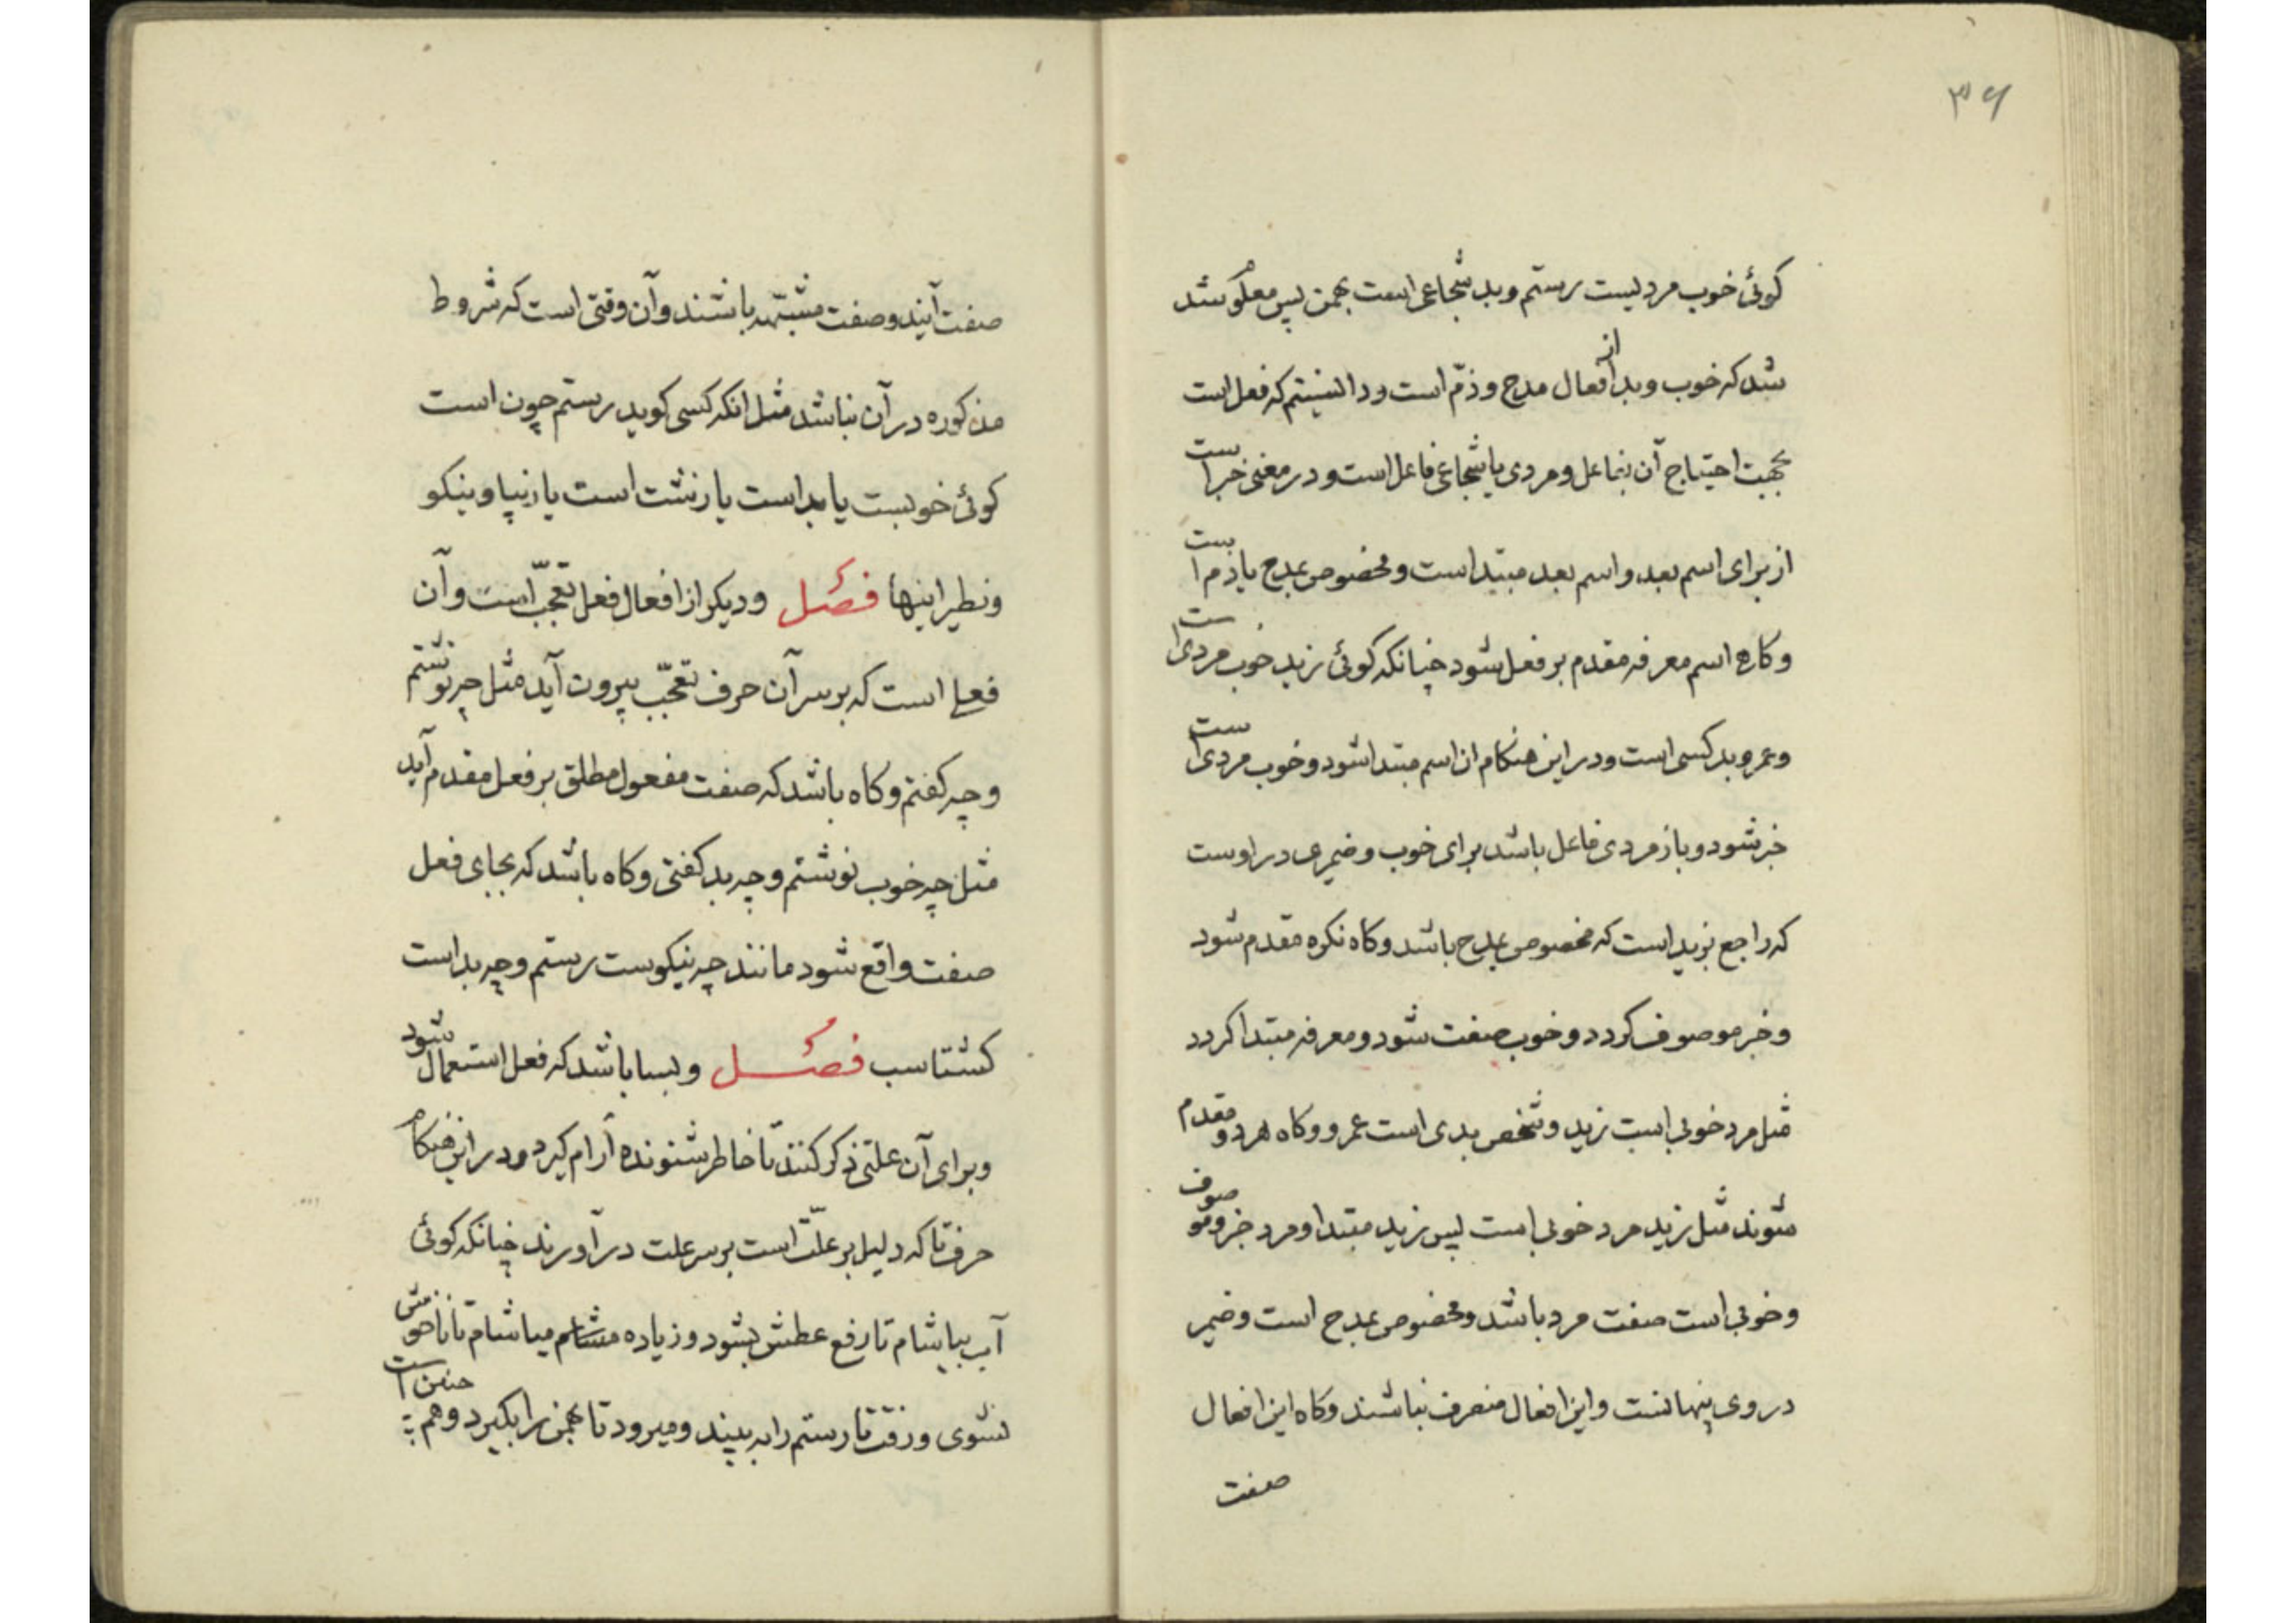 ۳۶
کوئی خوب مردیست رستم و بد شجاعی است بهمن پس معلوم شد
شد که خوب و بد از افعال مدح و ذمّ است و دانستیم که فعل است
بجهت احتیاج آن بفاعل و مردی یا شجاعی فاعل است و در معنی خبر است
از برای اسم بعد و اسم بعد مبتداست و مخصوص بمدح یا ذم است
و کاه اسم معرفه مقدم بر فعل شود چنانکه کوئی زید خوب مردی است
و عمرو بد کسی است و در این هنکام ان اسم مبتدا شود و خوب مردی است
خبر شود و باز مردی فاعل باشد برای خوب و ضمیری در اوست
که راجع بزید است که مخصوص بمدح باشد و کاه نکره مقدم شود
و خبر موصوف کردد و خوب صفت شود و معرفه مبتدا کردد
مثل مرد خوبی است زید و شخص بدی است عمرو و کاه هر دو مقدم
شوند مثل زید مرد خوبی است پس زید مبتدا و مرد خبر و موصوف
و خوبی است صفت مرد باشد و مخصوص بمدح است و ضمیر
در وی پنهانست و این افعال منصرف نباشند و کاه این افعال
صفت
صفت آیند و صفت مشبّهه باشند و آن وقتی است که شروط
مذکوره در آن نباشد مثل انکه کسی کوید رستم چون است
کوئی خوبست یا بد است یا زشت است یا زیبا و نیکو
و نظیر اینها فصل و دیکر از افعال فعل تعجّب است و آن
فعلی است که بر سر آن حرف تعجّب بیرون آید مثل چه نوشتم
و چه کفتم و کاه باشد که صفت مفعول مطلق بر فعل مقدم آید
مثل چه خوب نوشتم و چه بد کفتی و کاه باشد که بجای فعل
صفت واقع شود مانند چه نیکوست رستم و چه بد است
کشتاسب فصل و بسا باشد که فعل استعمال شود
و برای آن علتی ذکر کنند تا خاطر شنونده آرام کیرد و در این هنکام
حرف تا که دلیل بر علّت است بر سر علت در آورند چنانکه کوئی
آب بیاشام تا رفع عطش بشود و زیاده میاشام تا ناخوش
نشوی و رفت تا رستم را به بیند و میرود تا بهمن را بکیرد و هم چنین است